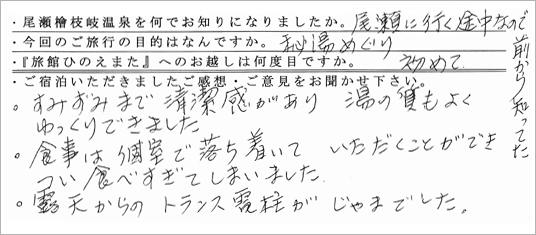 ・尾瀬檜枝岐温泉を何でお知りになりましたか。尾瀬に行く途中なので
前から知ってた
・今回のご旅行の目的はなんですか。秘湯めぐり
・『旅館ひのえまた』へのお越しは何度目ですか。初めて
・ご宿泊いただきましたご感想・ご意見をお聞かせ下さい。
。すみずみまで清潔感があり 湯の質もよく
ゆっくりできました
。食事は個室で落ち着いて いただくことができ
つい食べすぎてしまいました.
・露天からの トランス電柱が じゃまでした。